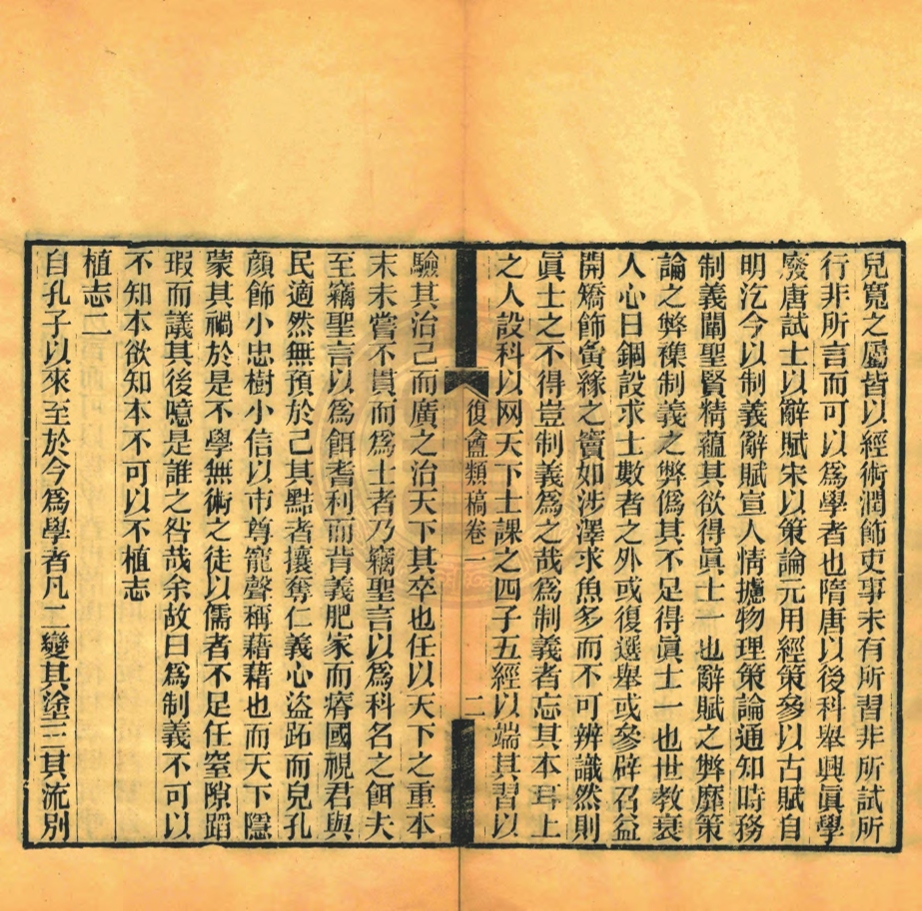 兒寬之屬皆以經術潤飾吏事未有所習非所試所
行非所言而可以爲學者也隋唐以後科舉興眞學
廢唐試士以辭賦宋以策論元用經策參以古賦自
明汔今以制義辭賦宣人情攄物理策論通知時務
制義闡聖賢精蘊其欲得眞士一也辭賦之弊靡策
論之弊襍制義之弊僞其不足得眞士一也世教衰
人心日錮設求士數者之外或復選舉或參辟召益
開矯飾夤緣之竇如涉澤求魚多而不可辨識然則
眞士之不得豈制義爲之哉爲制義者忘其本耳上
之人設科以网天下士課之四子五經以端其習以
復盦類稿卷一
二
驗其治己而廣之治天下其卒也任以天下之重本
末未嘗不貫而爲士者乃竊聖言以爲科名之餌夫
至竊聖言以爲餌耆利而背義肥家而瘠國視君與
民適然無預於己其黠者攘奪仁義心盜跖而皃孔
顏飾小忠樹小信以市尊寵聲稱藉藉也而天下隱
蒙其禍於是不學無術之徒以儒者不足任窒隙蹈
瑕而議其後噫是誰之咎哉余故曰爲制義不可以
不知本欲知本不可以不植志
植志二
自孔子以來至於今爲學者凡二變其塗三其流別